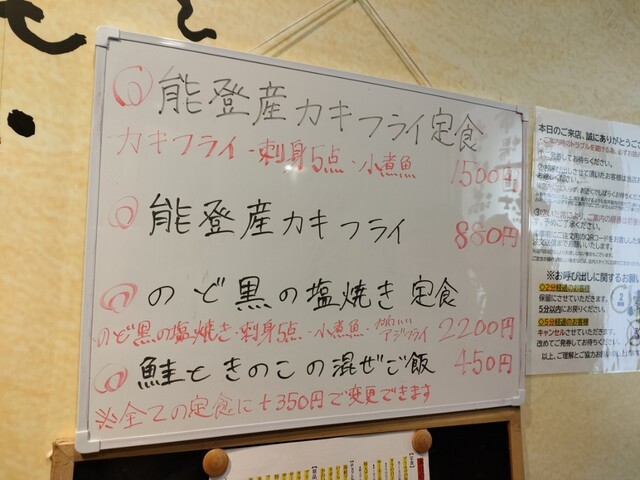 能登産カキフライ定食
・カキフライ・刺身5点・小煮魚
1500円
能登産カキフライ
880円
のど黒の塩焼き定食
・のど黒の塩焼き・刺身5点・小煮魚・
アジフライ
2200円
鮭ときのこの混ぜご飯
450円
※全ての定食に+350円で変更できます
本日のご来店、誠にありがとうご
※お呼び出しに関するお願い
◇2分経過のお客様
保留にさせていただきます。
5分以内にお戻りください。
◇5分経過のお客様
キャンセルさせていただきます。
改めてご発券してお待ちください。
以上、ご理解とご協力お願い